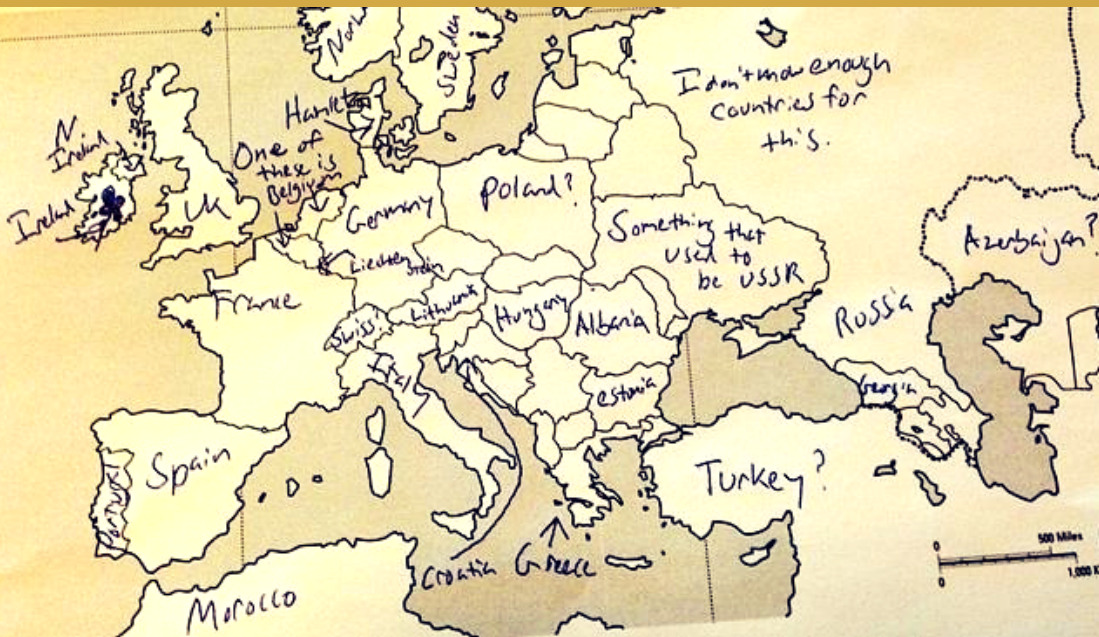 Norw
Sweden
I don't know enough
countries for
this.
Hamlet
N
Ireland
One of
these is
Belgium
Ireland
UK
Germany
Poland?
Something that
used to
be USSR
Azerbaijan?
Liechten stein
France
Swiss?
Lithuania
Hungary
Albania
Russia
Italy
estonia
Georgia
Spain
Portugal
Turkey?
Croatia
Greece
Morocco
0
500 Miles
0
1,000 K